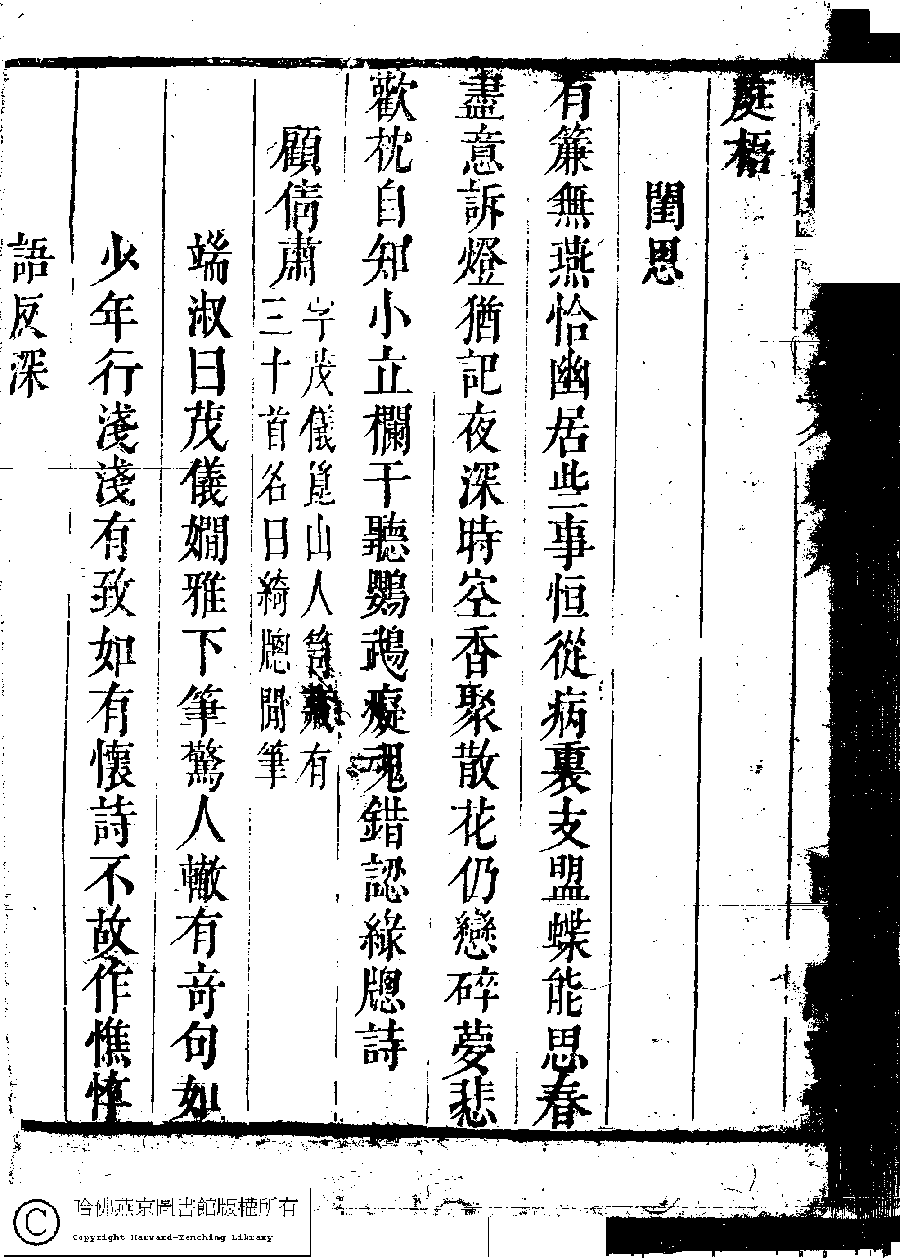 庭梧
閨思
有簾無燕恰幽居些事恒從病裏支盟蝶能思春
盡意訴燈猶記夜深時空香聚散花仍戀碎夢悲
歡枕自知小立欄干聽鸚鵡癡魂錯認綠牕詩
顧倩肅
字茂儀崑山人笥藏有
三十首名曰綺牕閒筆
端淑曰茂儀嫺雅下筆驚人轍有奇句如
少年行淺淺有致如有懷詩不故作憔悴
語反深
哈佛燕京圖書館版權所有
Copyright Harvard-Yenching Library